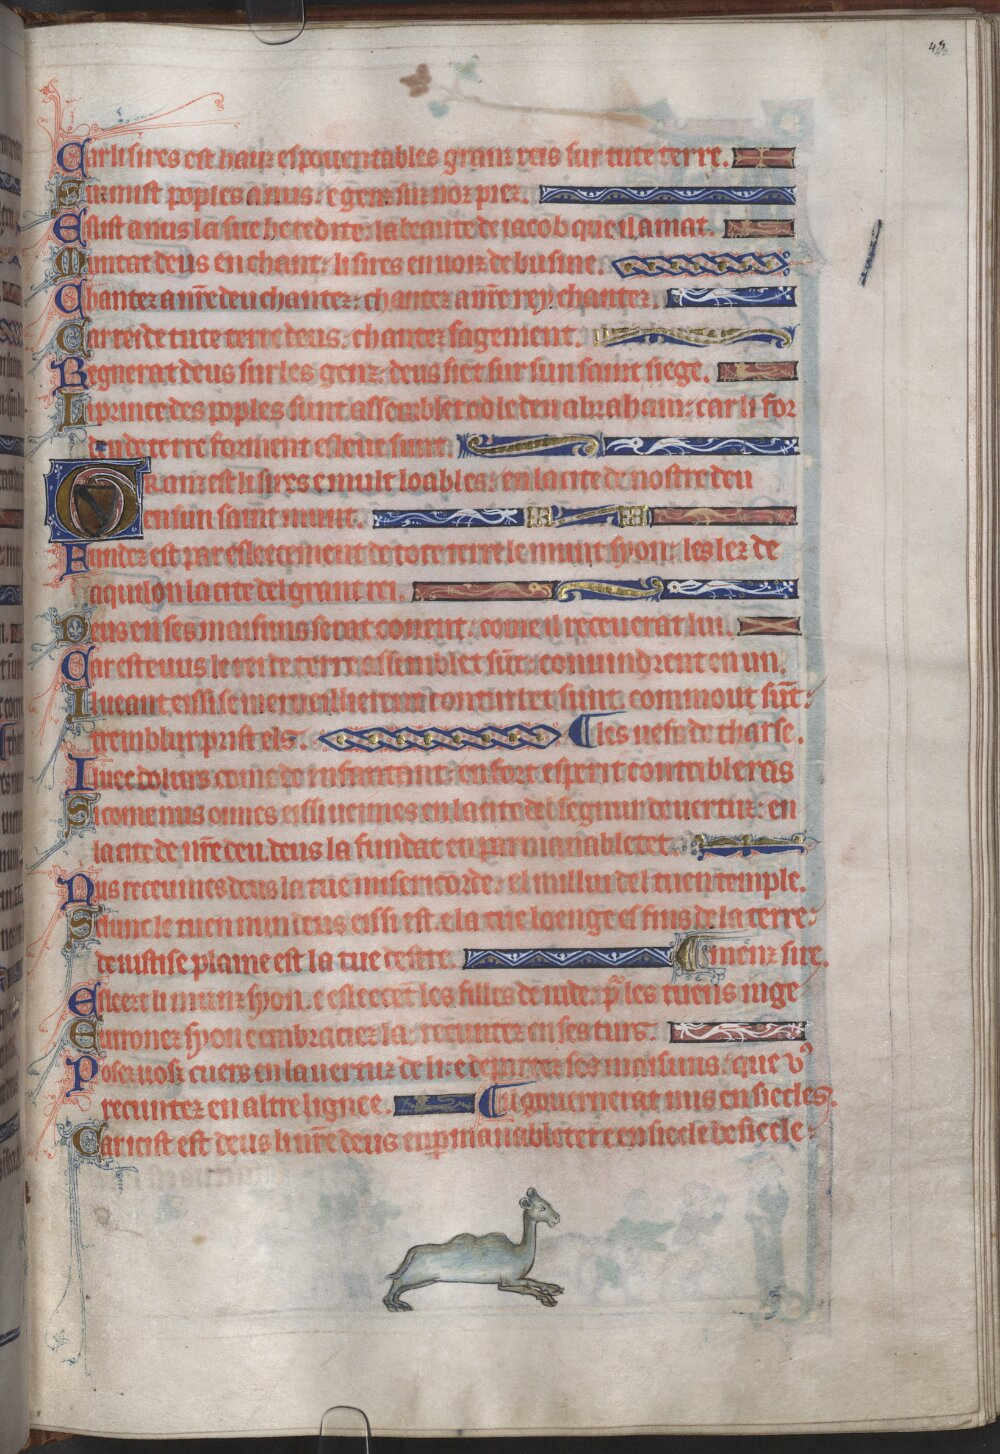 43
Car li sires est hauz espouentables granz reis sur tute terre.
suzmist poples a nus: e genz suz noz piez.
Eslist a nus la sue heredite: la beaute de iacob que il amat.
Muntat deus en chant: li sires en uoiz de busine.
Chantez a nr̄e deu chantez: chantez a nr̄e rey chantez.
Car rei de tute terre deus: chantez sagement.
Regnerat deus sur les genz: deus siet sur sun saint siege.
Li prince des poples sunt assemblet od le deu abraham: car li fort
deu de terre forment esleue sunt.
Granz est li sires e mult loables: en la cite de nostre deu
en sun saint munt.
Fundez est par esleecement de tote terre le munt syon: les lez de
aquilon la cite del grant rei.
Deus en ses maisuns serat coneut: come il receuerat lui.
Car esteuus le rei de terre assemblet sūt: conuindrent en un.
Il ueant eissi se merueillierent conturbet sunt commout sūt:
tremblur prist els. les nefs de tharse.
Iluec dolurs come de enfantant: en fort esperit contribleras
Si come nus oimes eissi ueimes en la cite del segnur de uertuz: en
la cite de nr̄e deu. deus la fundat en parmanabletet.
Nus receumes deus la tue misericorde: el milliu del tuen temple.
Sulunc le tuen nun deus eissi est. e la tue loenge es fins de la terre:
de iustise plaine est la tue destre. iuemenz sire.
Esleezt li munz syon. e esleecent les filles de iude: p̄ les tuens iuge
Auironez syon e embraciez la: recuntez en ses turs.
Posez uoz cuers en la uertuz de li: e departez ses maisuns: que v9
recuntez en altre lignee. il guuernerat nus en siecles.
Car icist est deus li nr̄e deus en pmanabletet e en siecle de siecle: